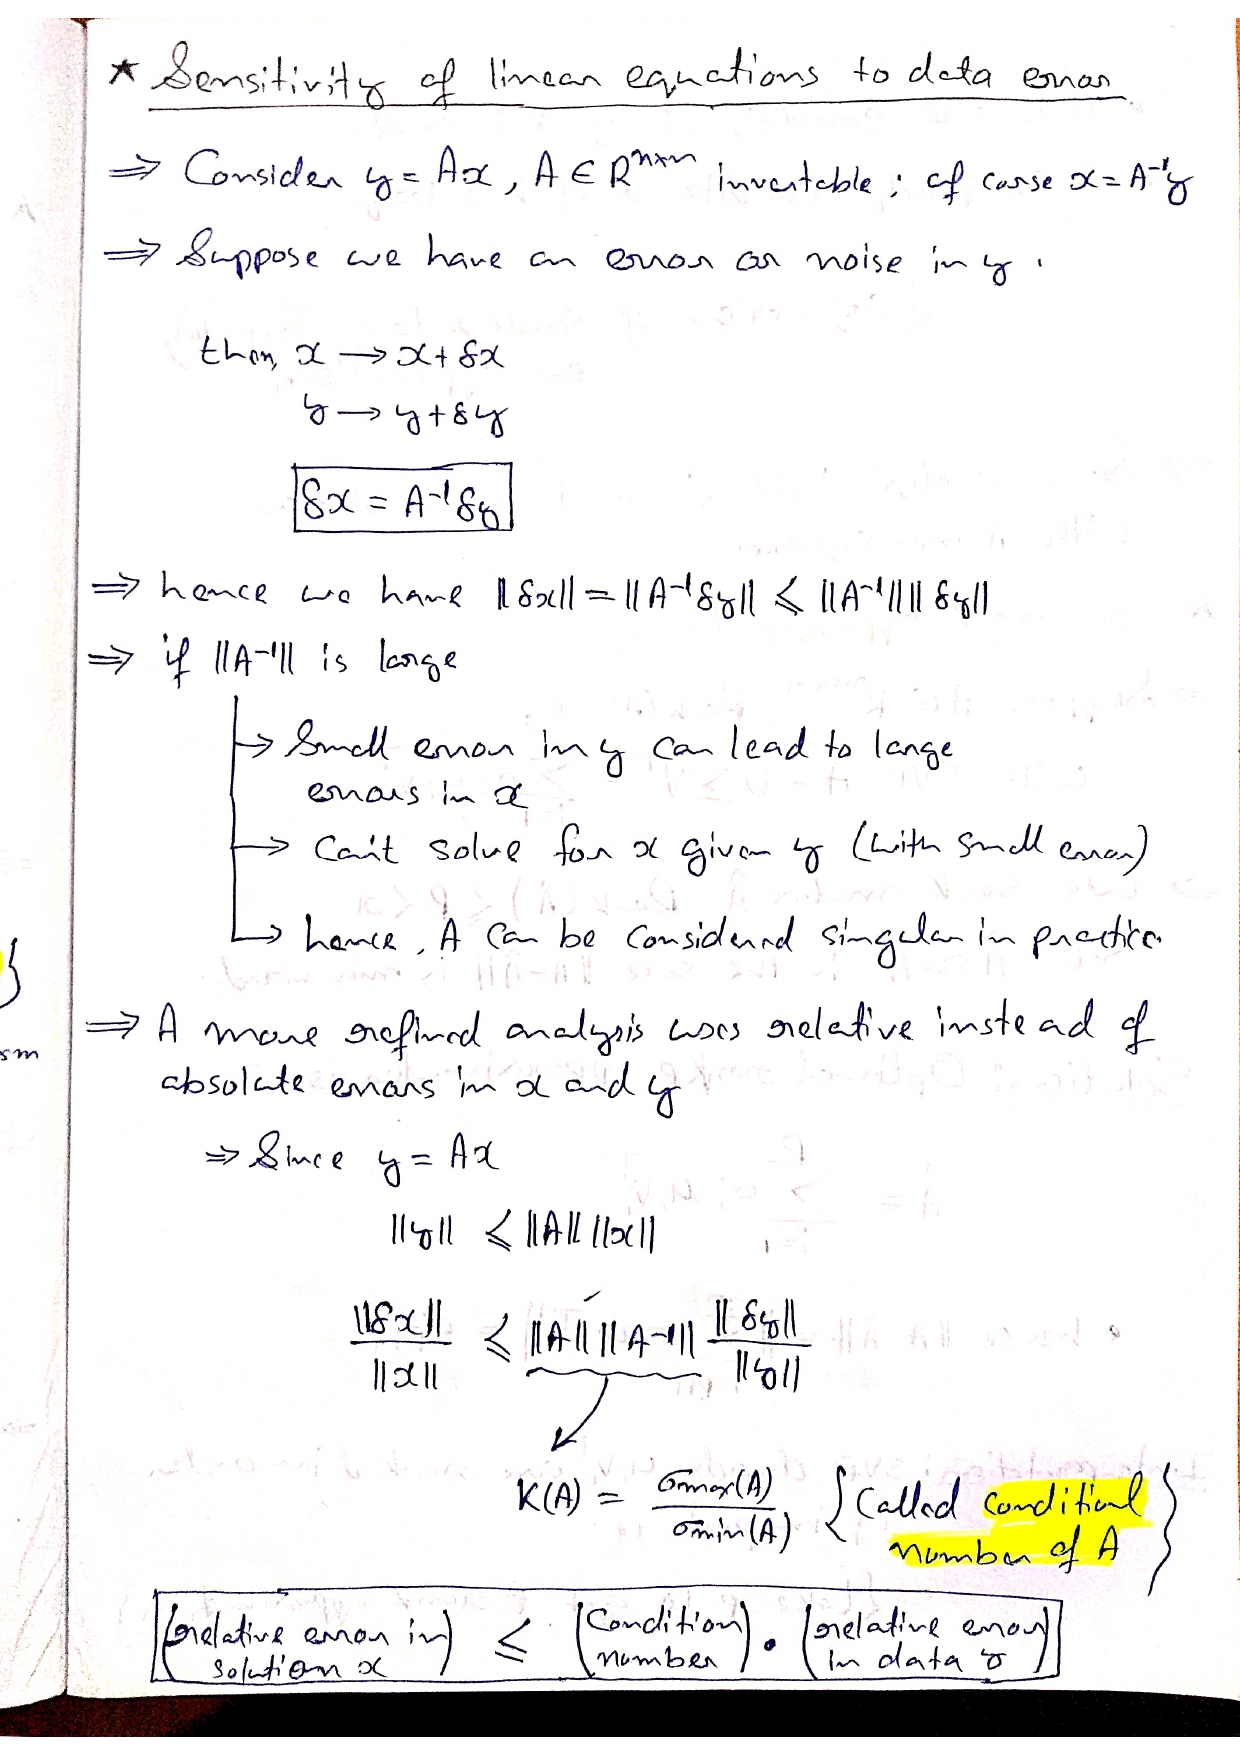 ★ Sensitivity of linear equations to data error
⇒ Consider y = Ax, A ∈ R^{n×n} invertable ; of corse x = A⁻¹y
⇒ Suppose we have an error or noise in y.
then, x → x + δx
y → y + δy
δx = A⁻¹δy
⇒ hence we have ||δx|| = ||A⁻¹δy|| ≤ ||A⁻¹|| ||δy||
⇒ if ||A⁻¹|| is large
→ Small error in y can lead to large
errors in x
→ Can't solve for x given y (with small error)
→ hence, A can be considered singular in practice
⇒ A more refined analysis uses relative instead of
sm
absolute errors in x and y
⇒ Since y = Ax
||y|| ≤ ||A|| ||x||
||δx|| / ||x|| ≤ ||A|| ||A⁻¹|| ||δy|| / ||y||
K(A) = σmax(A) / σmin(A) { Called conditional
number of A }
(relative error in solution x) ≤ (Condition number) . (relative error in data y)